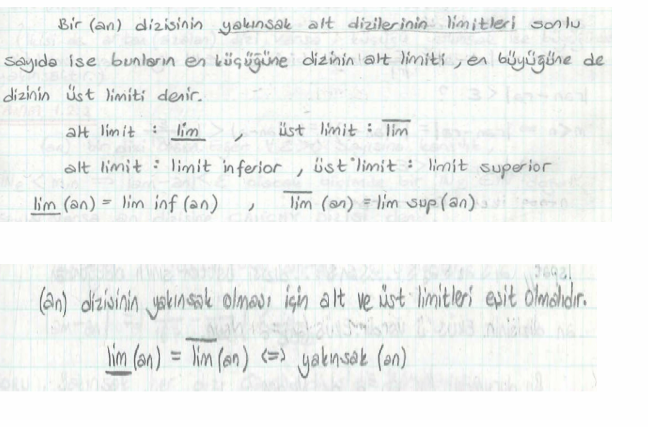 Bir (an) dizisinin yakınsak alt dizilerinin limitleri sonlu
sayıda ise bunların en küçüğüne dizinin alt limiti, en büyüğüne de
dizinin üst limiti denir.
alt limit : <u>lim</u> , üst limit : l̅i̅m̅
alt limit : limit inferior , üst limit : limit superior
<u>lim</u> (an) = lim inf (an) , l̅i̅m̅ (an) = lim sup (an)
(an) dizisinin yakınsak olması için alt ve üst limitleri eşit olmalıdır.
<u>lim</u> (an) = l̅i̅m̅ (an) <=> yakınsak (an)